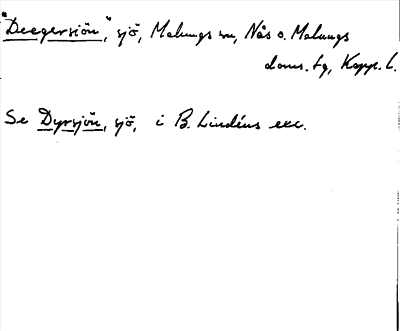 "Deegersiön," sjö, Malungs sn, Nås o. Malungs
doms. tg, Kopp. l.
Se Dyrsjön, sjö, i B. Lindéns exc.